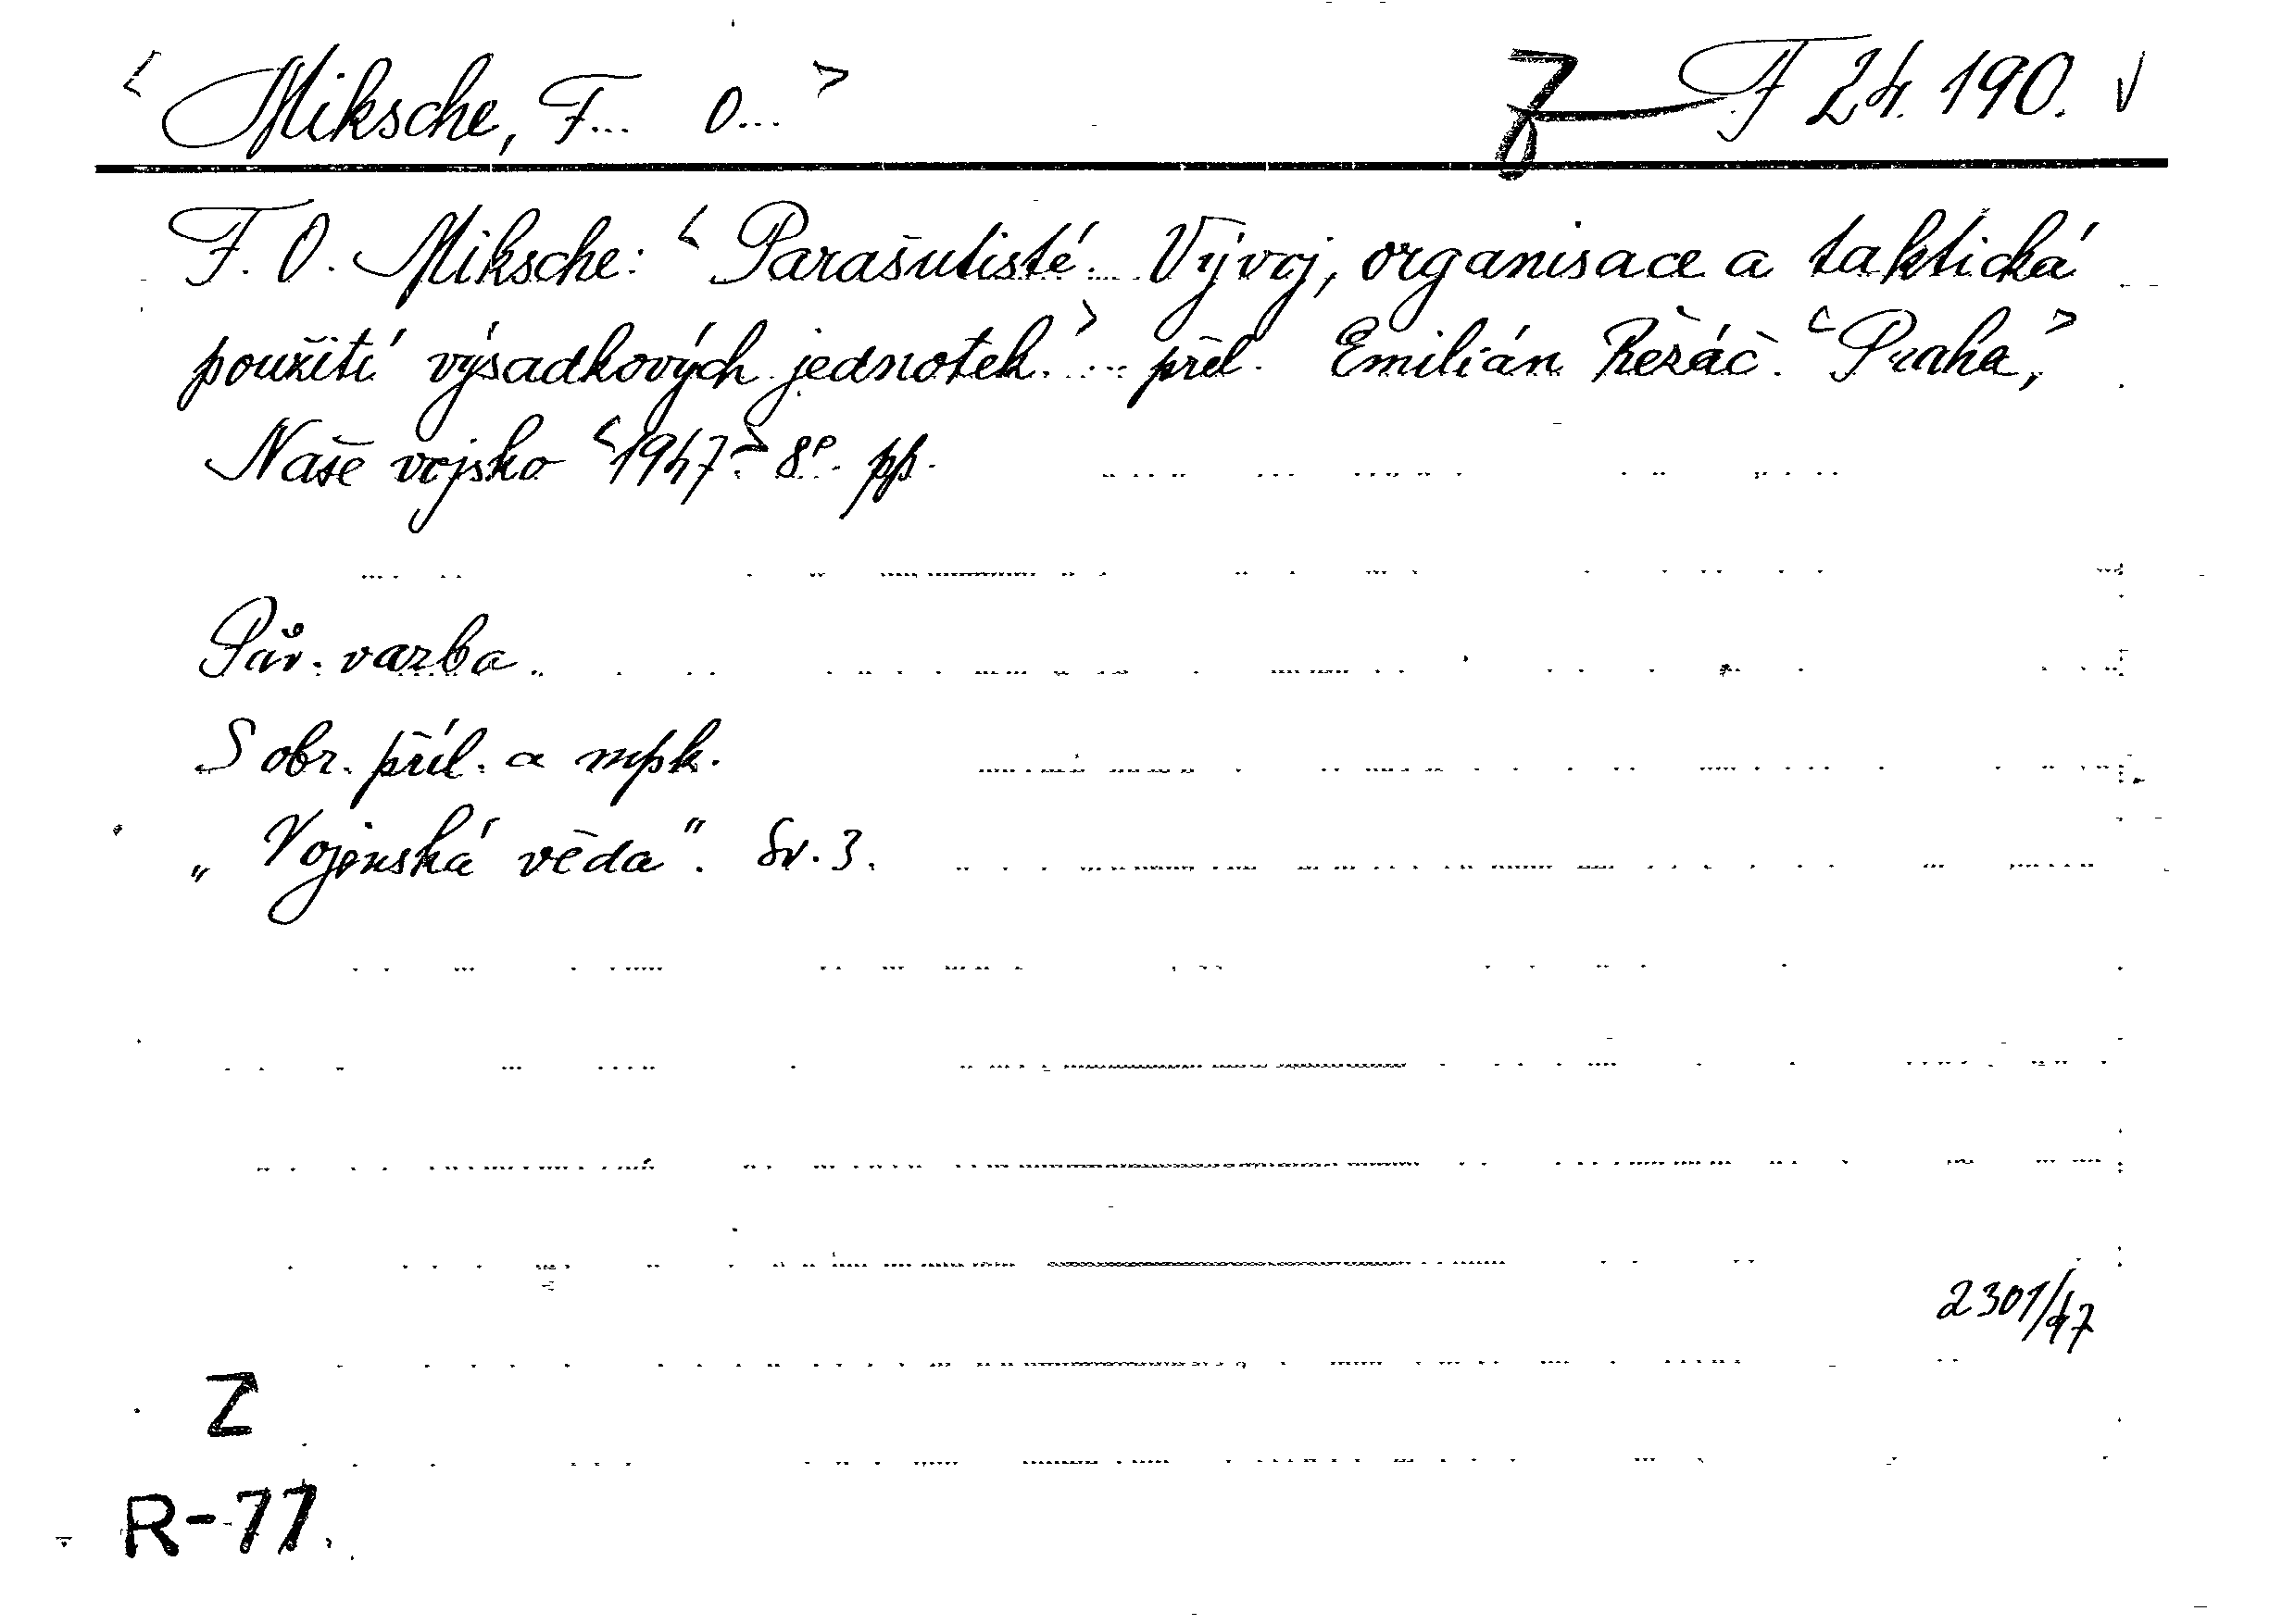 < Miksche, F... O... > Z F 24.190. √
F. O. Miksche: < Parašutisté. Vývoj, organisace a taktická
použití výsadkových jednotek. > přel. Emilián Řezáč. < Praha, >
Naše vojsko < 1947. > 8°. pp.
Pův. varba.
S obr. příl. a mpk.
„Vojenská věda". Sv. 3.
2301/47
Z
R-77.